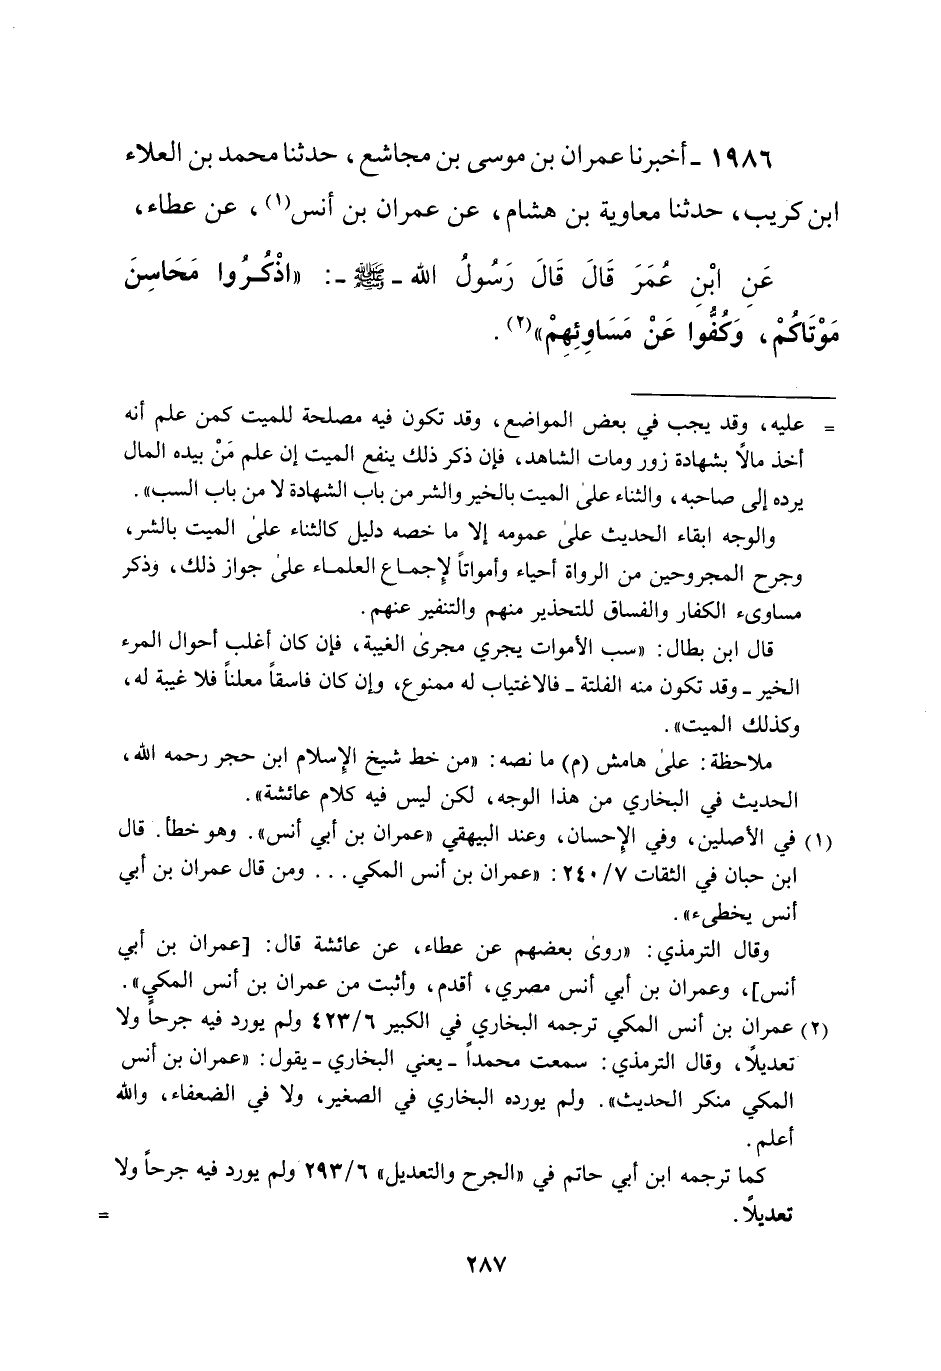 ١٩٨٦ ـ أخبرنا عمران بن موسى بن مجاشع، حدثنا محمد بن العلاء
ابن كريب، حدثنا معاوية بن هشام، عن عمران بن أنس(١)، عن عطاء،
عَنِ ابْنِ عُمَرَ قَالَ قَالَ رَسُولُ الله ـ ﷺ ـ: «اذْكُرُوا مَحَاسِنَ
مَوْتَاكُمْ، وَكُفُّوا عَنْ مَسَاوِئِهِمْ»(٢).
= عليه، وقد يجب في بعض المواضع، وقد تكون فيه مصلحة للميت كمن علم أنه
أخذ مالاً بشهادة زور ومات الشاهد، فإن ذكر ذلك ينفع الميت إن علم مَنْ بيده المال
يرده إلى صاحبه، والثناء علىٰ الميت بالخير والشر من باب الشهادة لا من باب السب».
والوجه ابقاء الحديث علىٰ عمومه إلا ما خصه دليل كالثناء علىٰ الميت بالشر،
وجرح المجروحين من الرواة أحياء وأمواتاً لإجماع العلماء علىٰ جواز ذلك، وذكر
مساوىء الكفار والفساق للتحذير منهم والتنفير عنهم.
قال ابن بطال: «سب الأموات يجري مجرىٰ الغيبة، فإن كان أغلب أحوال المرء
الخير ـ وقد تكون منه الفلتة ـ فالاغتياب له ممنوع، وإن كان فاسقاً معلناً فلا غيبة له،
وكذلك الميت».
ملاحظة: علىٰ هامش (م) ما نصه: «من خط شيخ الإسلام ابن حجر رحمه الله،
الحديث في البخاري من هذا الوجه، لكن ليس فيه كلام عائشة».
(١) في الأصلين، وفي الإحسان، وعند البيهقي «عمران بن أبي أنس». وهو خطأ. قال
ابن حبان في الثقات ٢٤٠/٧: «عمران بن أنس المكي... ومن قال عمران بن أبي
أنس يخطىء».
وقال الترمذي: «روىٰ بعضهم عن عطاء، عن عائشة قال: [عمران بن أبي
أنس]، وعمران بن أبي أنس مصري، أقدم، وأثبت من عمران بن أنس المكي».
(٢) عمران بن أنس المكي ترجمه البخاري في الكبير ٤٢٣/٦ ولم يورد فيه جرحاً ولا
تعديلاً، وقال الترمذي: سمعت محمداً ـ يعني البخاري ـ يقول: «عمران بن أنس
المكي منكر الحديث». ولم يورده البخاري في الصغير، ولا في الضعفاء، والله
أعلم.
كما ترجمه ابن أبي حاتم في «الجرح والتعديل» ٢٩٣/٦ ولم يورد فيه جرحاً ولا
تعديلاً. =
٢٨٧